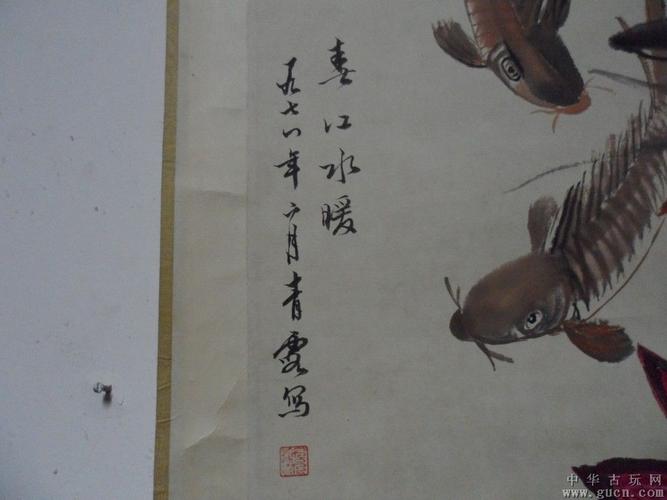 春江水暖
一九七八年六月青露写
中华古玩网
www.gucn.com